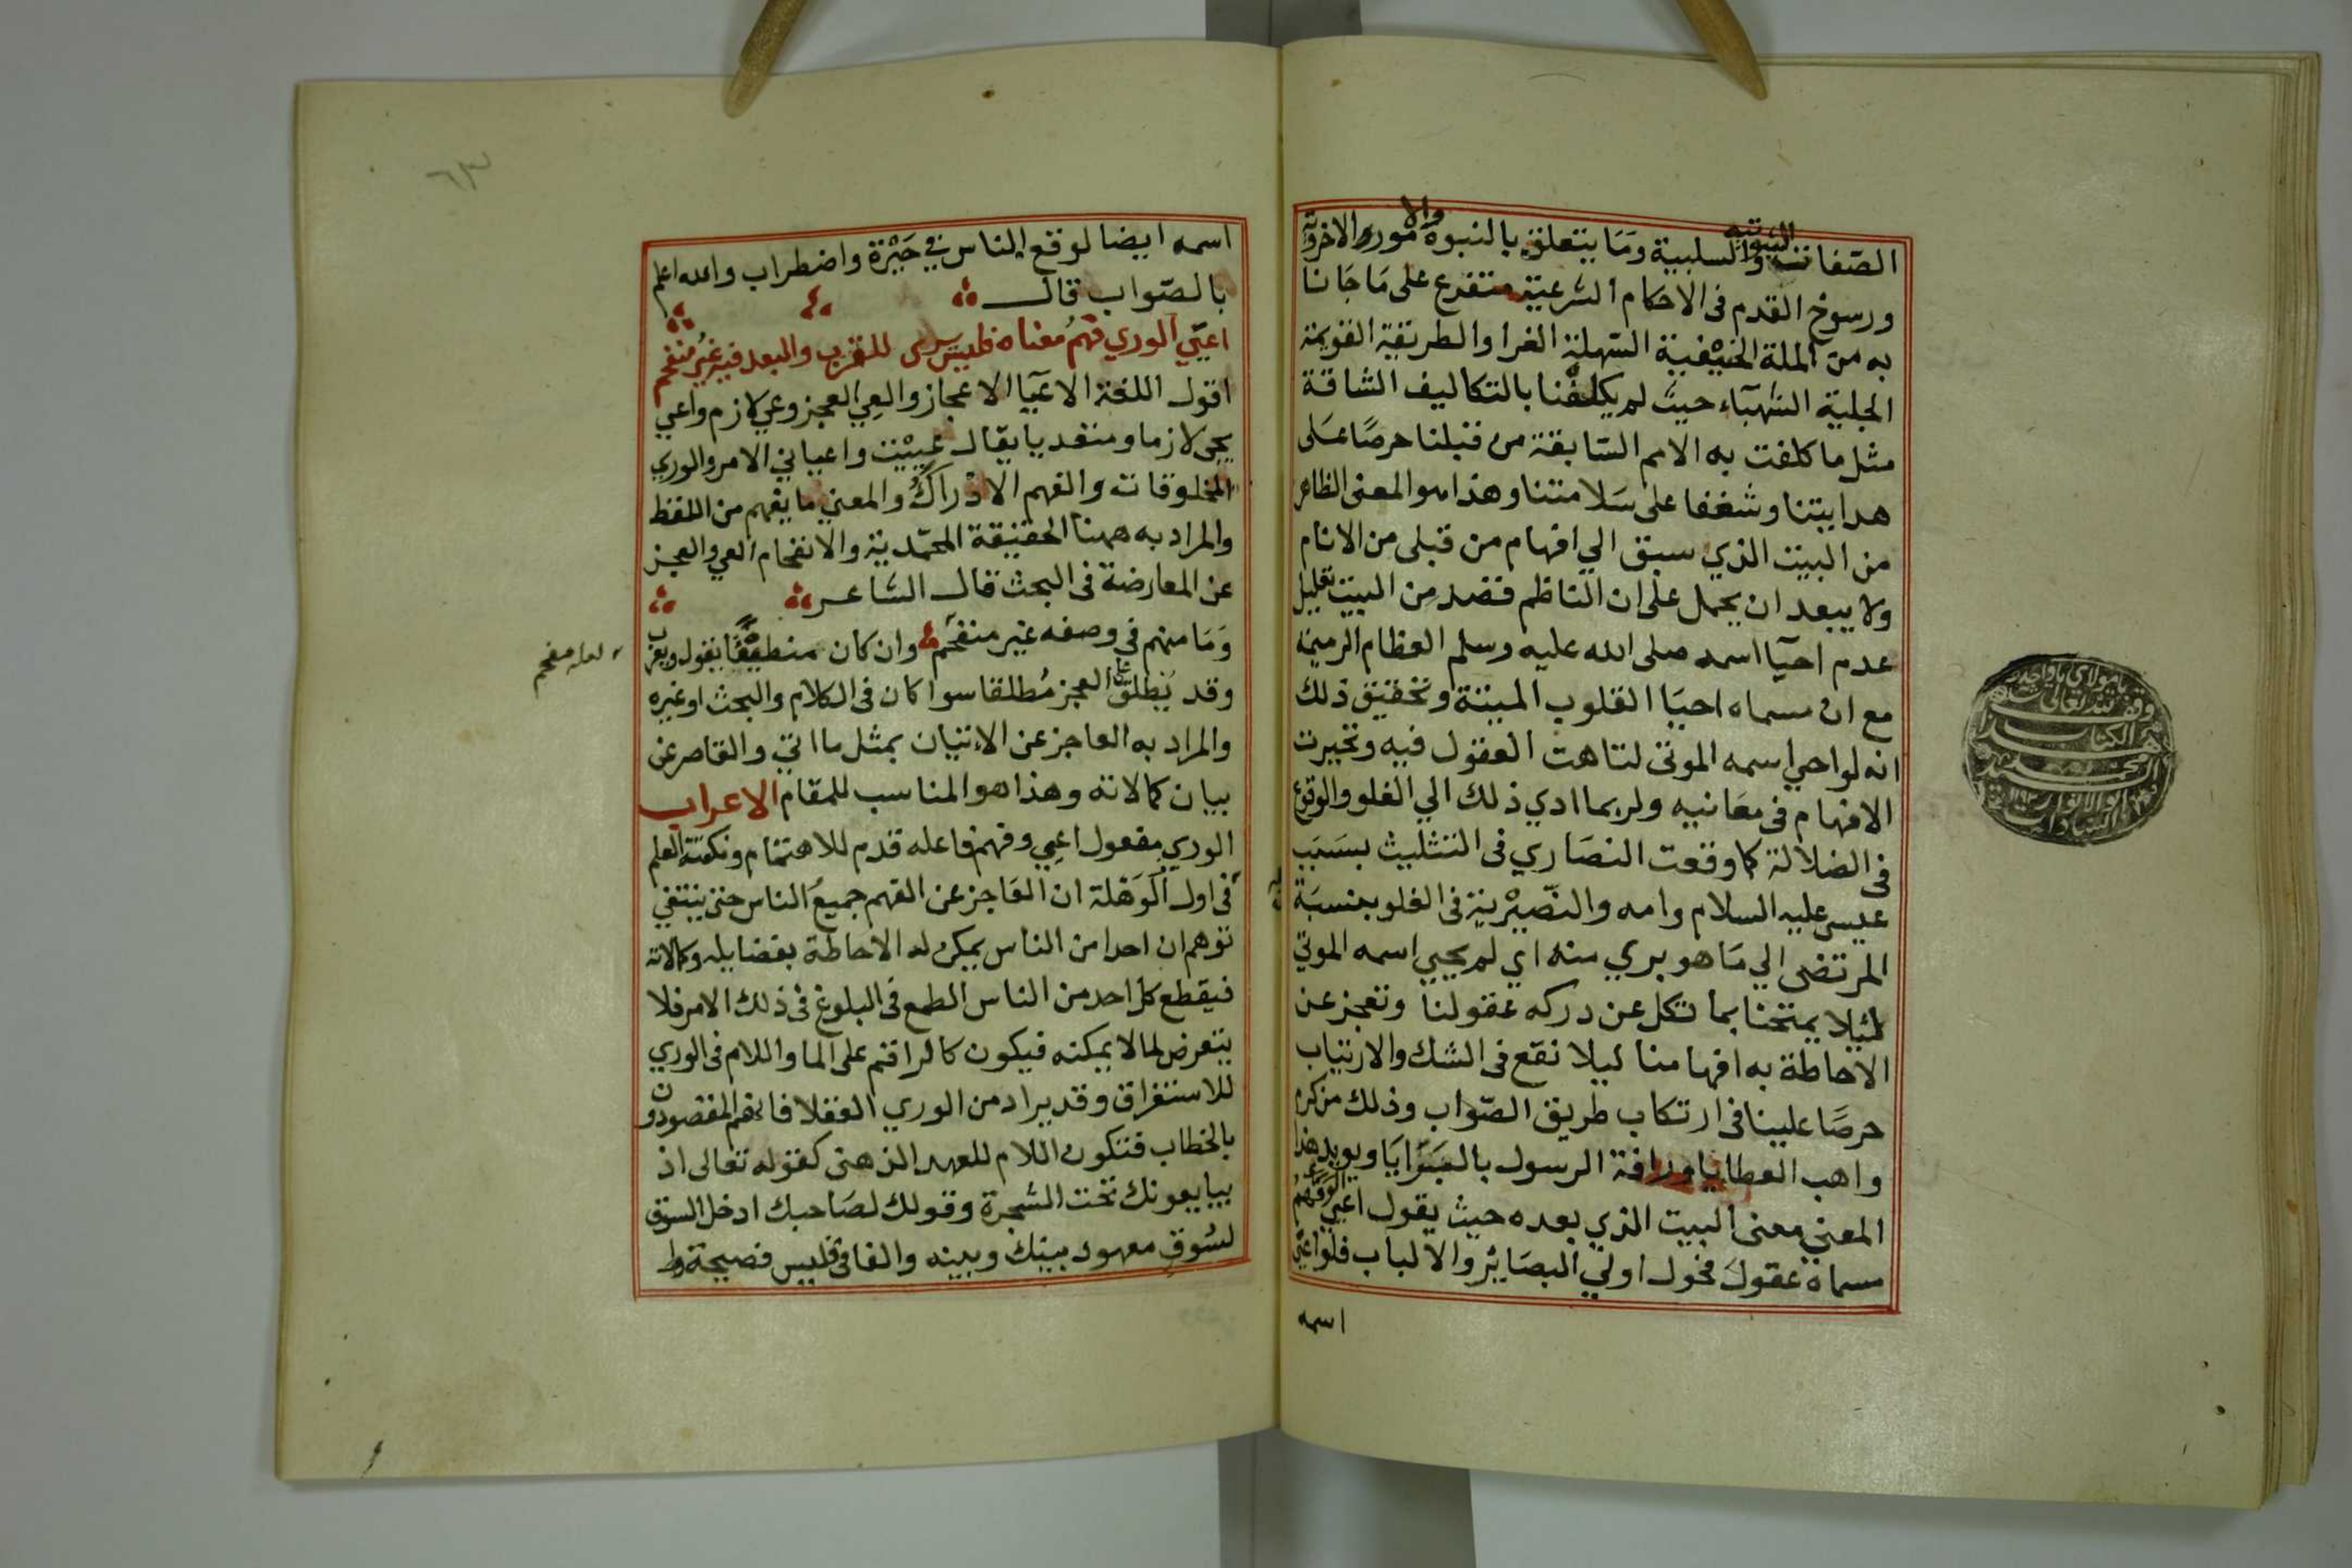 الصفات الثبوتية والسلبية ومَا يتعلق بالنبوة والامور الاخروية
ورسوخ القدم فى الاحكام الشرعية متفرع على مَا جَانا
به من الملة الحنيْفية السّهلة الغرا والطريقة القويمة
الجلية الشهبآء حيث لم يكلفنا بالتكاليف الشاقة
مثل ما كلفت به الامم السّابقة من قبلنا حرصًا عَلى
هدايتنا وشغفا على سَلامتنا وهذا هو المعنى الظاهر
من البيت الذي سبق الي افهام من قبلى من الانام
ولا يبعد ان يحمل على ان الناظم قصد من البيت تعليل
عدم احيآ اسمه صلى الله عليه وسلم العظام الرميمة
مع ان مسماه احيَا القلوب الميتة وتحقيق ذلك
انه لو احيي اسمه الموتى لتاهت العقول فيه وتحيرت
الافهام فى معَانيه ولربما ادي ذلك الي الغلو والوقوع
فى الضلالة كما وقعت النصَاري فى التثليث بسَبَب
عيسى عليه السلام وامه والنّصيْرية فى الغلو بنسبَة
المرتضى الي مَا هو بري منه اي لم يحيي اسمه الموتي
لئيلا يمتحنا بما تكل عن دركه عقولنا وتعجز عن
الاحاطة به افهامنا ليلا نقع فى الشك والارتياب
حرصَا علينا فى ارتكاب طريق الصّواب وذلك من كرم
واهب العطايا ورافة الرسول بالبَرَايَا ويويد هذا
المعني معنى البيت الذي بعده حيث يقول اعيي الوري فهم
مسماه عقول فحول اولي البصَائر والالباب فلو اعيي
اسمه
اسمه ايضا لوقع الناس في حَيْرة واضطراب والله اعلم
بالصّواب قال
اعيّي الوري فهمُ معناه فليس يرى للقرب والبعد فيه غيرُ منفحم
اقول اللغة الاعيَا الاعجاز والعِي العجز وعي لازم واعيي
يجي لازما ومتعديا يقال عييْت واعياني الامر والوري
المخلوقات والفهم الادْراكُ والمعني ما يفهم من اللفظ
والمراد به ههنا الحقيقة المحمّدية والانفحام العي والعجز
عن المعارضة فى البحث قال الشاعر
وَمَا منهم في وصفه غير منفحم وان كان منطيقًا يقول ويعرب
وقد يُطلق على العجز مُطلقا سوا كان فى الكلام والبحث او غيره
والمراد به العاجز عن الاءتيان بمثل ما اتي والقاصر عن
بيان كمالاته وهذا هو المناسب للمقام الاعراب
الوري مفعول اعيي وفهم فاعله قدم للاهتمام ونكتته العلم
فى اول الوَهْلة ان العَاجز عن الفهم جميعُ الناس حتى ينتفي
توهم ان احدا من الناس يمكن له الاحاطة بفضايله وكمالاته
فيقطع كل احد من الناس الطمع فى البلوغ فى ذلك الامر فلا
يتعرض لما لا يمكنه فيكون كالراقم على الما واللام فى الوري
للاستغراق وقد يراد من الوري العقلا فانهم المقصودون
بالخطاب فتكون اللام للعهد الذهنى كقوله تعالى اذ
يبايعونك تحت الشجرة وقولك لصَاحبك ادخل السوق
لسُوقٍ معهود بينك وبينه والفا فى فليس فصيحة
لعله مفحم
٦٣